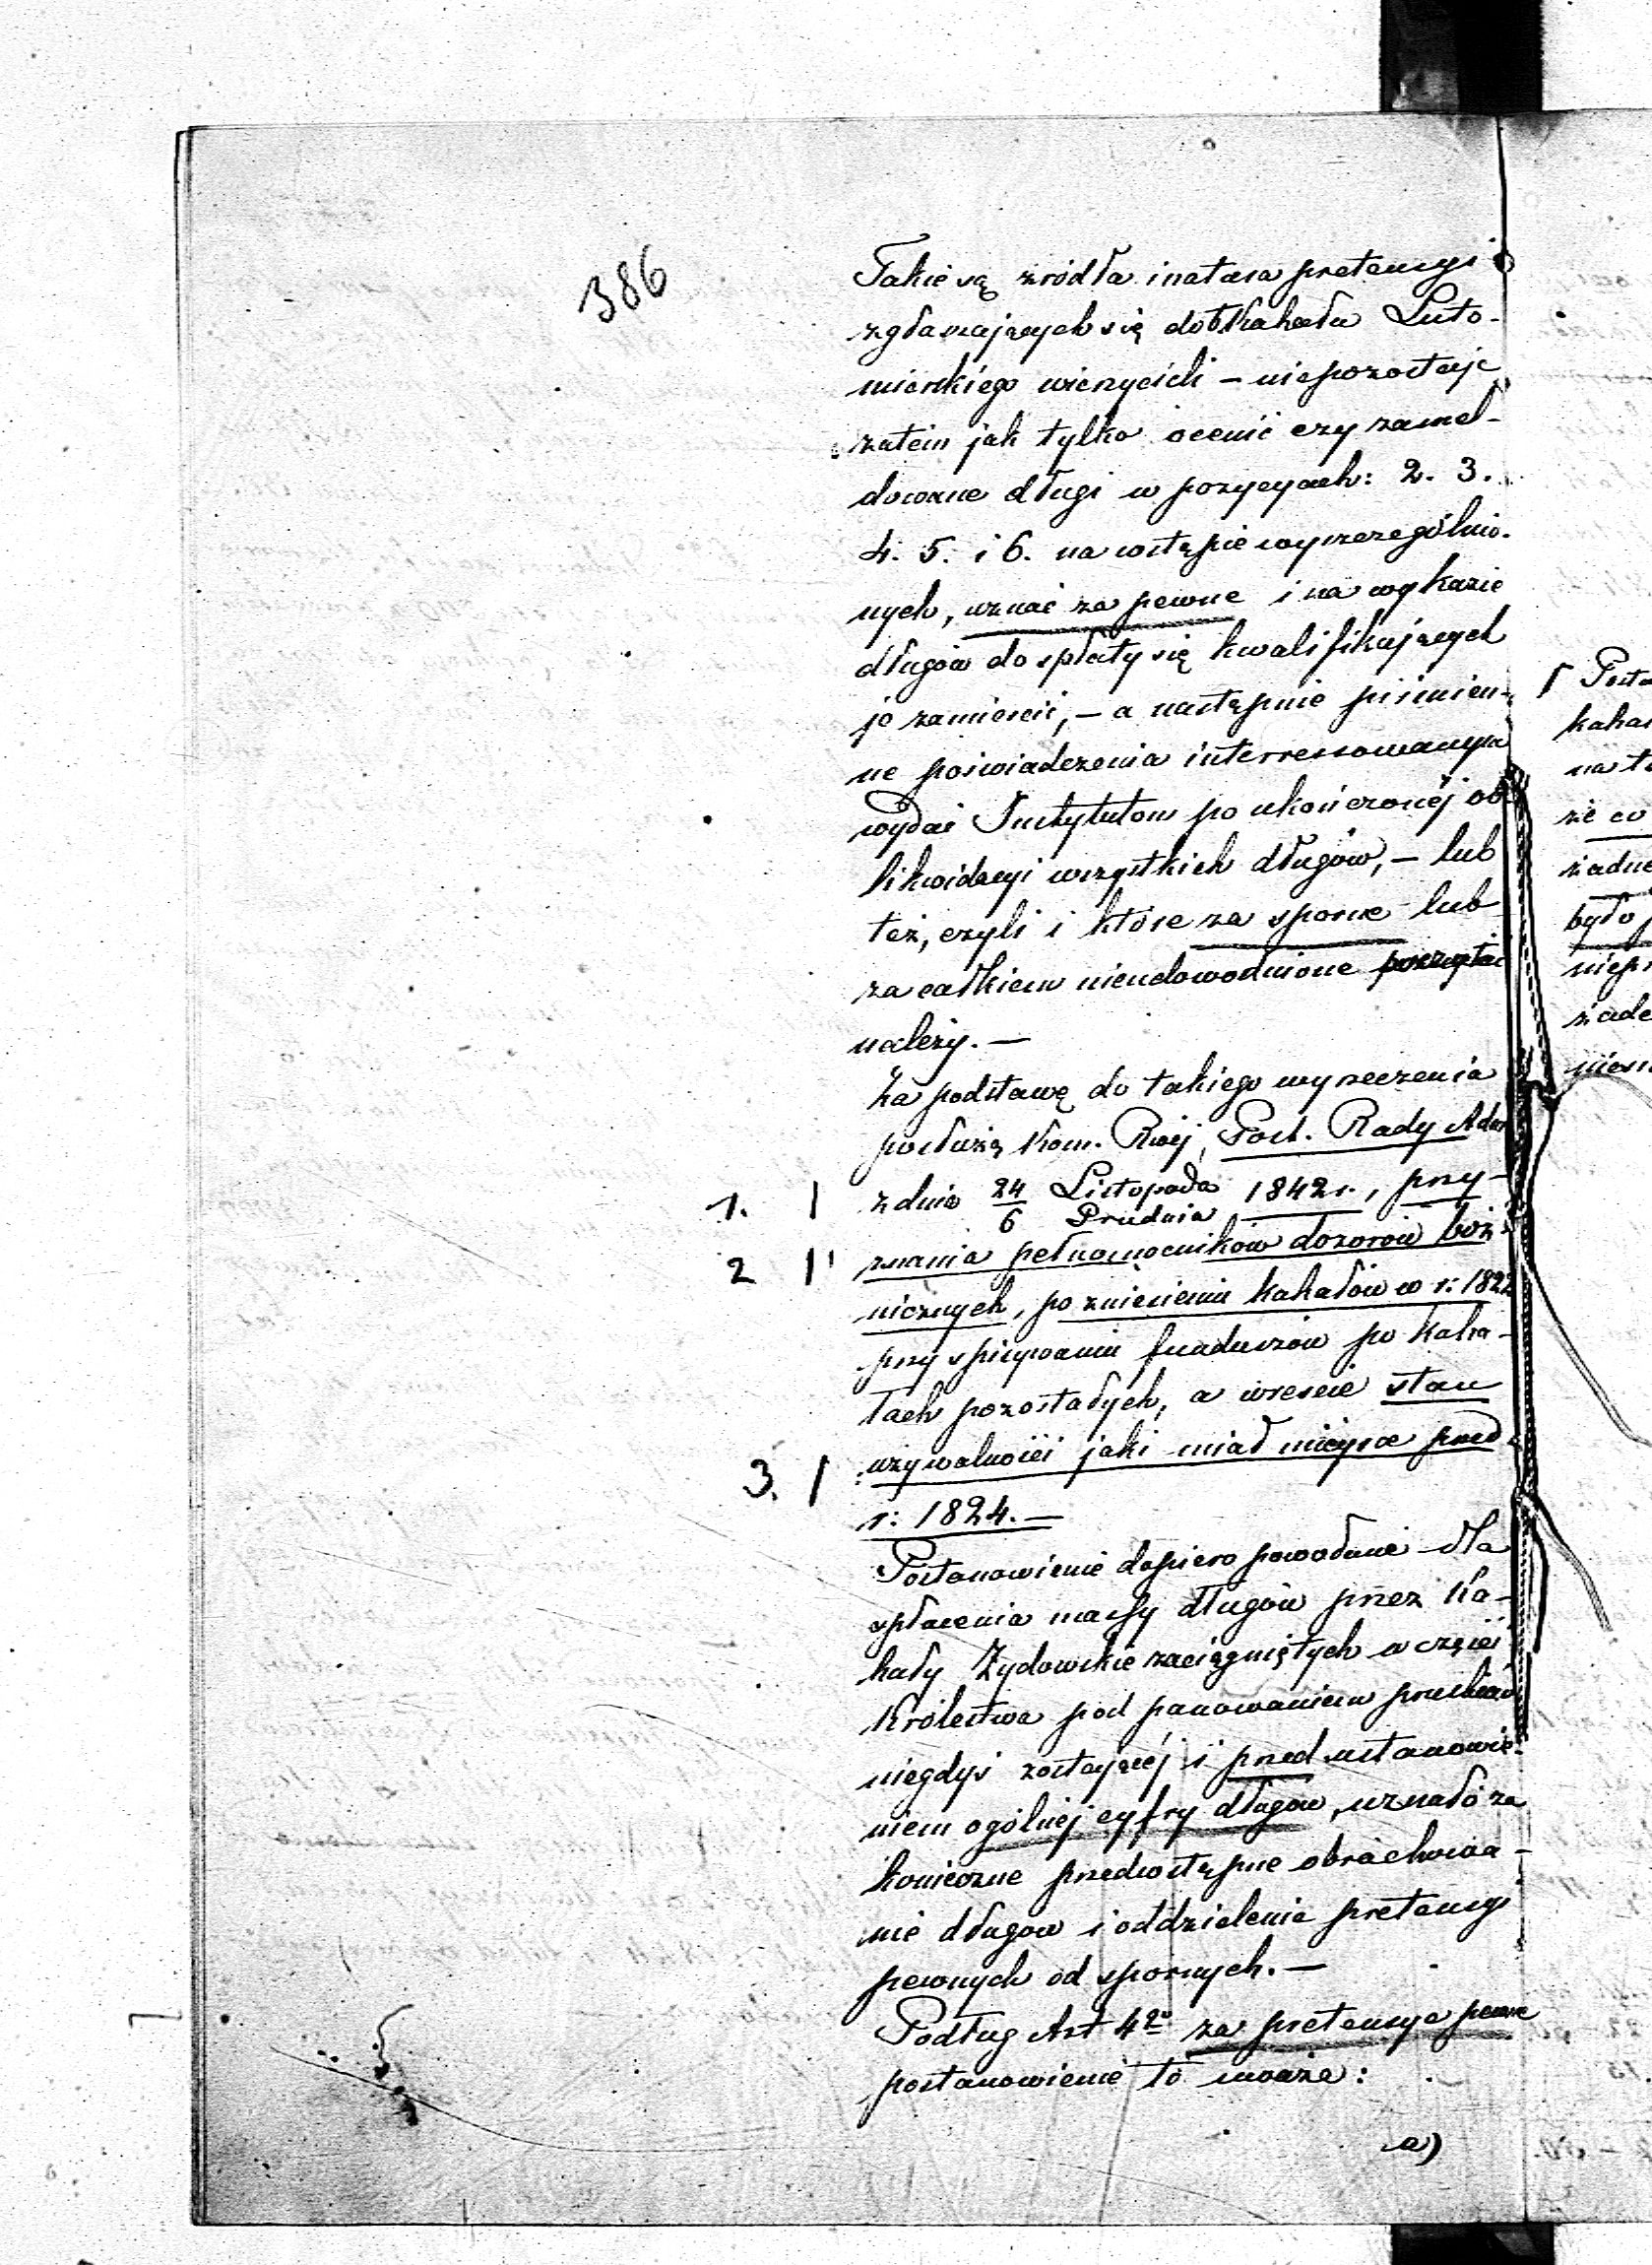 386
Takie są zródła i natura pretensyi
zgłaszających się do b Kahału Luto-
mierskiego wierzycieli – niepozostaje
zatem jak tylko ocenić czy zamel-
dowane długi w pozycyach: 2. 3.
4. 5. i 6. na wstępie wyszczególnio-
nych, uznać za pewne i na wykazie
długów do spłaty się kwalifikujących
je zamieścić, – a następnie piśmien-
ne poświadczenia interressowanym
wydać Instytutom po ukończonéj ob
likwidacyi wszystkich długów, – lub
też, czyli i które za sporne lub
za całkiem nieudowodnione poczytać
należy. –
Za podstawę do takiego wyrzeczenia
posłużą Kom. Rząj, Post. Rady Adm
1. z dnia 24/6 Listopada/Grudnia 1842 r., przy-
2 znania pełnomocników dozorów boż-
nicznych, po zniesieniu kahałów w r: 1822
przy spisywaniu funduszów po kaha-
łach pozostałych, a wrescie stan
3. używalności jaki miał miéysce przed
r: 1824. –
Postanowienie dopiero powołane dla
spłacenia massy długów przez Ka-
hały Żydowskie zaciągniętych w części
Królestwa pod panowaniem pruskiém
niegdyś zostającéj i przed ustanowie-
niem ogólnéj cyfry długów, uznało za
konieczne przedwstępne obrachowa-
nie długow i oddzielenie pretensyi
pewnych od spornych. –
Podług Art 4go za pretensye pewne
postanowienie to uważa:
a)
Posta
kaha
na t
że co
żadne
było
niepr
żade